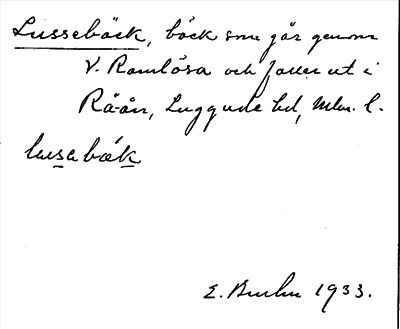 Lussebäck, bäck som går genom
V. Ramlösa och faller ut i
Rå-ån, Luggude hd, Mlm. l.
lusabæk
E. Bruhn 1933.